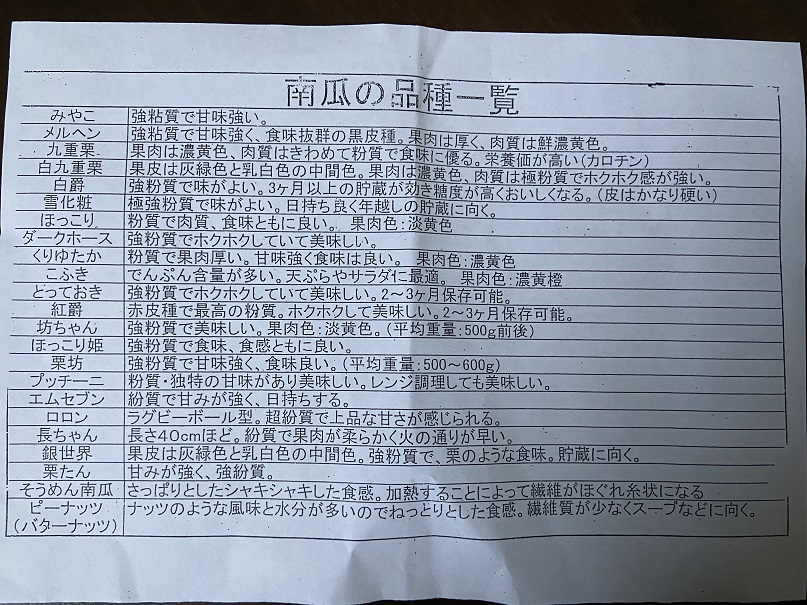 南瓜の品種一覧
みやこ 強粘質で甘味強い。
メルヘン 強粘質で甘味強く、食味抜群の黒皮種。果肉は厚く、肉質は鮮濃黄色。
九重栗 果肉は濃黄色、肉質はきわめて粉質で食味に優る。栄養価が高い(カロチン)
白九重栗 果皮は灰緑色と乳白色の中間色。果肉は濃黄色、肉質は極粉質でホクホク感が強い。
白爵 強粉質で味がよい。3ヶ月以上の貯蔵が効き糖度が高くおいしくなる。(皮はかなり硬い)
雪化粧 極強粉質で味がよい。日持ち良く年越しの貯蔵に向く。
ほっこり 粉質で肉質、食味ともに良い。 果肉色:淡黄色
ダークホース 強粉質でホクホクしていて美味しい。
くりゆたか 粉質で果肉厚い。甘味強く食味は良い。 果肉色:濃黄色
こふき でんぷん含量が多い。天ぷらやサラダに最適。 果肉色:濃黄橙
とっておき 強粉質でホクホクしていて美味しい。2~3ヶ月保存可能。
紅爵 赤皮種で最高の粉質。ホクホクして美味しい。2~3ヶ月保存可能。
坊ちゃん 強粉質で美味しい。果肉色:淡黄色。(平均重量:500g前後)
ほっこり姫 強粉質で食味、食感ともに良い。
栗坊 強粉質で甘味強く、食味良い。(平均重量:500~600g)
プッチーニ 粉質・独特の甘味があり美味しい。レンジ調理しても美味しい。
エムセブン 紛質で甘みが強く、日持ちする。
ロロン ラグビーボール型。超紛質で上品な甘さが感じられる。
長ちゃん 長さ40cmほど。紛質で果肉が柔らかく火の通りが早い。
銀世界 果皮は灰緑色と乳白色の中間色。強粉質で、栗のような食味。貯蔵に向く。
栗たん 甘みが強く、強紛質。
そうめん南瓜 さっぱりとしたシャキシャキした食感。加熱することによって繊維がほぐれ糸状になる
ピーナッツ ナッツのような風味と水分が多いのでねっとりとした食感。繊維質が少なくスープなどに向く。
(バターナッツ)